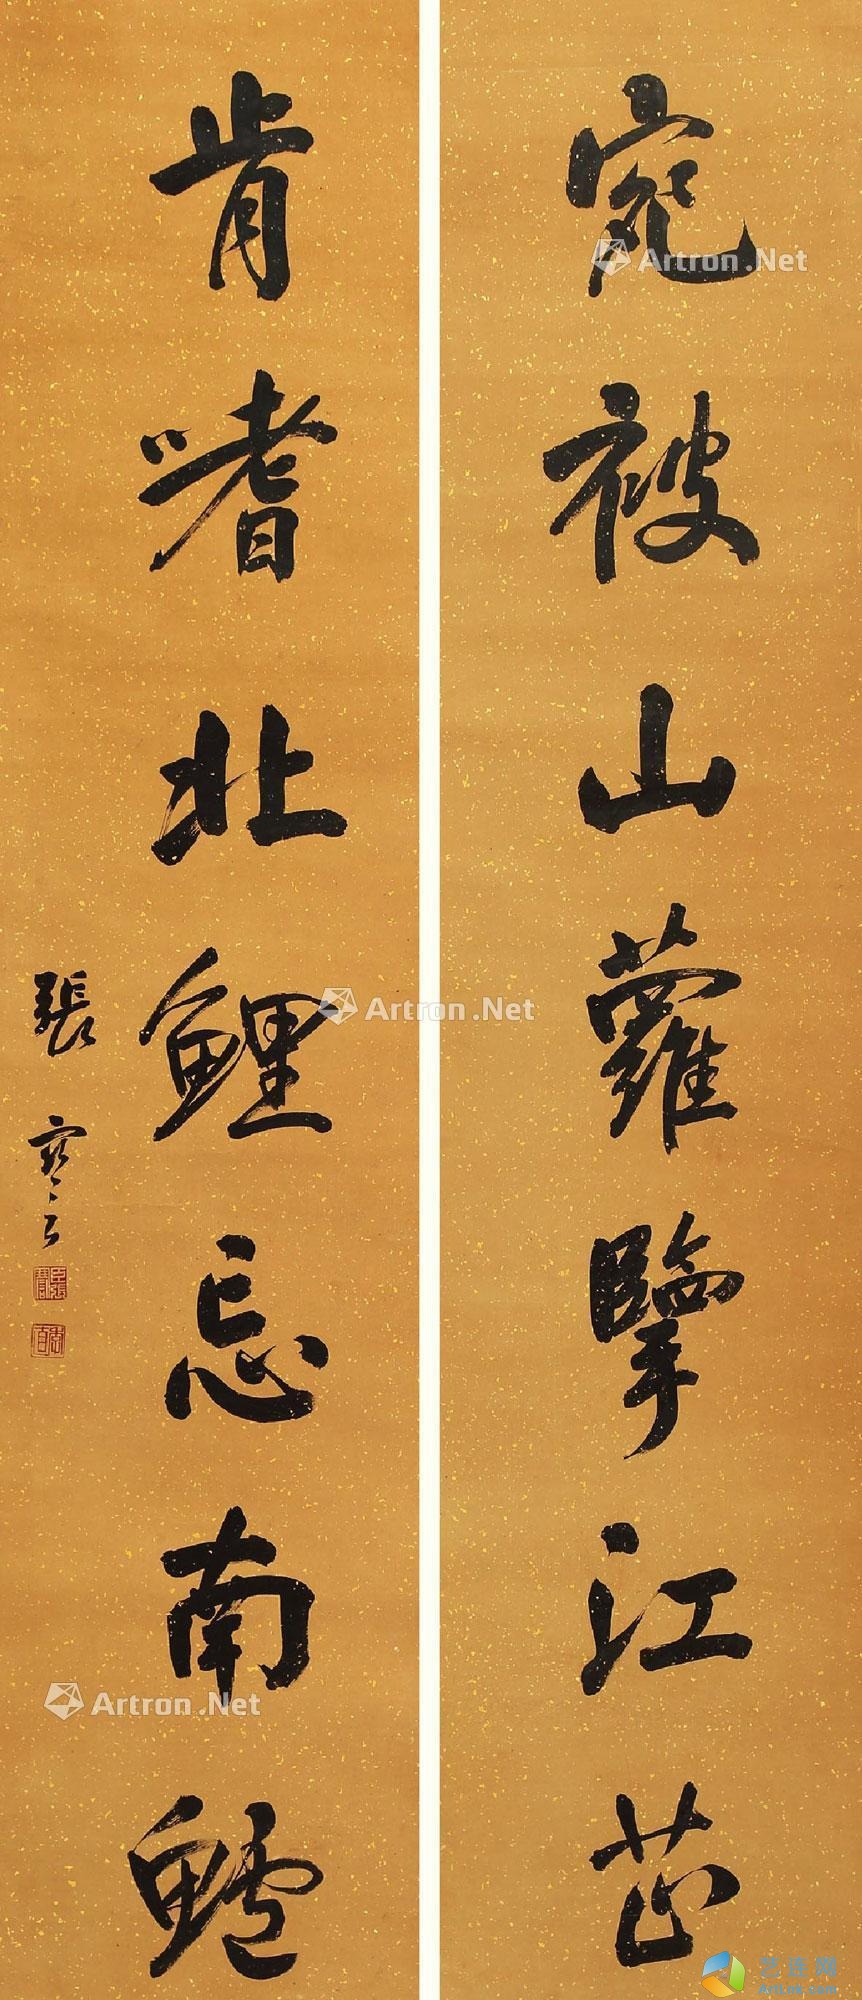 宛被山蘿擥江芷
肯嗜北鯉忘南鱸
張謇
Artron.Net
Artron.Net
Artron.Net
艺连网
ArtLink.com